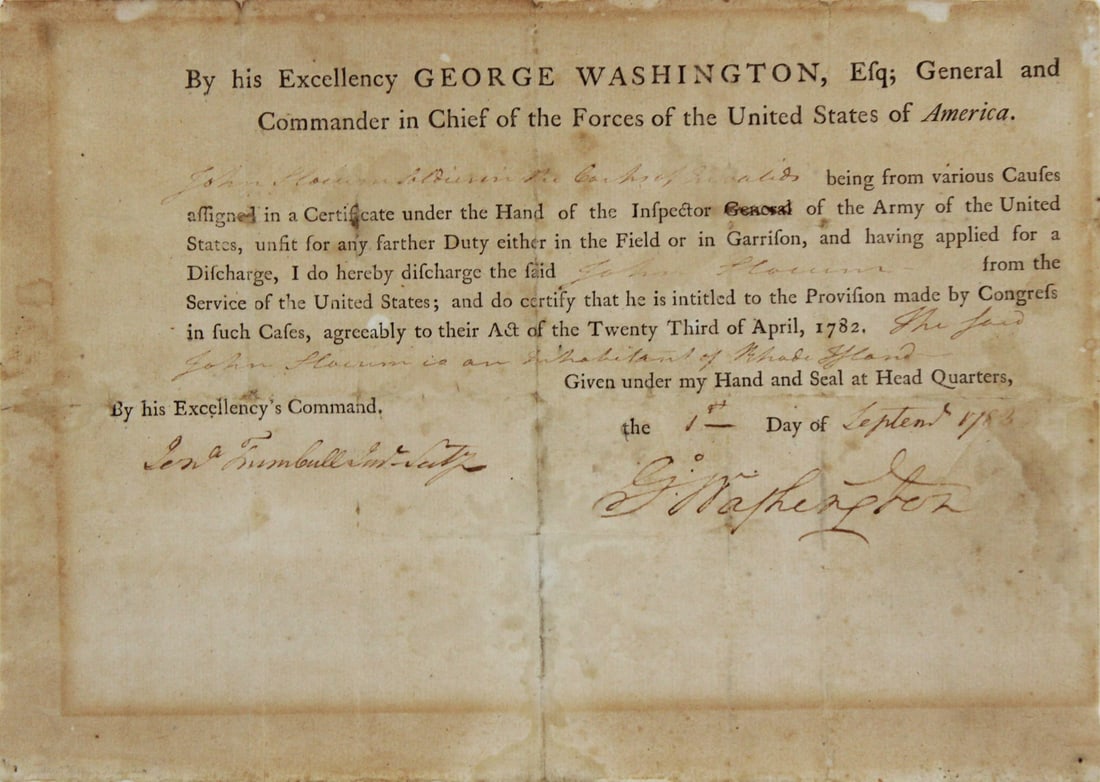 By his Excellency GEORGE WASHINGTON, Eſq; General and
Commander in Chief of the Forces of the United States of America.
John Slocum Soldier in the Corps of Invalids being from various Cauſes
aſſigned in a Certificate under the Hand of the Inſpector General of the Army of the United
States, unfit for any farther Duty either in the Field or in Garriſon, and having applied for a
Diſcharge, I do hereby diſcharge the ſaid John Slocum from the
Service of the United States; and do certify that he is intitled to the Proviſion made by Congreſs
in ſuch Caſes, agreeably to their Act of the Twenty Third of April, 1782. The ſaid
John Slocum is an inhabitant of Rhode Iſland
Given under my Hand and Seal at Head Quarters,
By his Excellency's Command.
the 1st Day of
Jonª Trumbull Junr Secty
Gº Washington